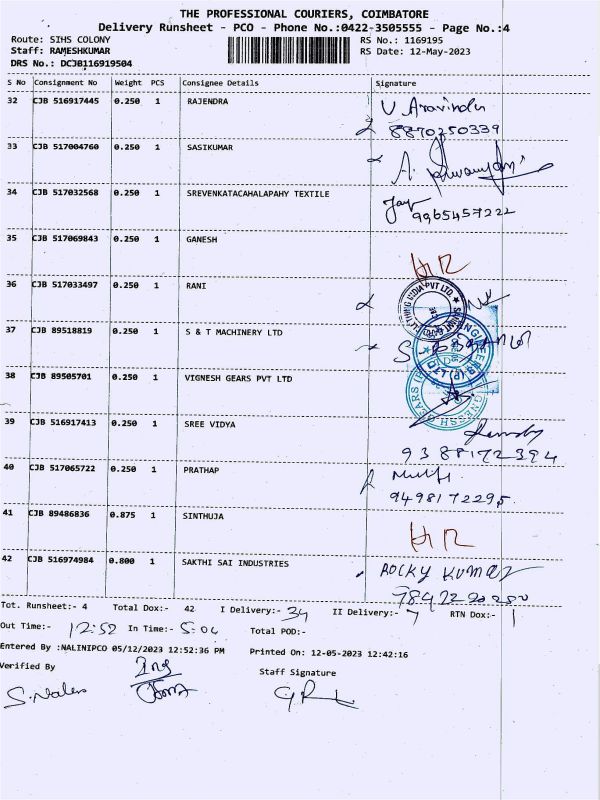 THE PROFESSIONAL COURIERS, COIMBATORE
Delivery Runsheet - PCO - Phone No.:0422-3505555 - Page No.:4
Route: SIHS COLONY RS No.: 1169195
Staff: RAMESHKUMAR RS Date: 12-May-2023
DRS No.: DCJB116919504
S No Consignment No Weight PCS Consignee Details Signature
32 CJB 516917445 0.250 1 RAJENDRA V Aravindh
8870250339
33 CJB 517004760 0.250 1 SASIKUMAR
34 CJB 517032568 0.250 1 SREVENKATACAHALAPAHY TEXTILE
9965457222
35 CJB 517069843 0.250 1 GANESH
36 CJB 517033497 0.250 1 RANI
37 CJB 89518819 0.250 1 S & T MACHINERY LTD
38 CJB 89505701 0.250 1 VIGNESH GEARS PVT LTD
39 CJB 516917413 0.250 1 SREE VIDYA
9388172394
40 CJB 517065722 0.250 1 PRATHAP
9498172295
41 CJB 89486836 0.875 1 SINTHUJA
42 CJB 516974984 0.800 1 SAKTHI SAI INDUSTRIES ROCKY KUMAR
Tot. Runsheet:- 4 Total Dox:- 42 I Delivery:- 34 II Delivery:- 7 RTN Dox:- 1
Out Time:- 12:52 In Time:- 5:04 Total POD:-
Entered By :NALINIPCO 05/12/2023 12:52:36 PM Printed On: 12-05-2023 12:42:16
Verified By Staff Signature